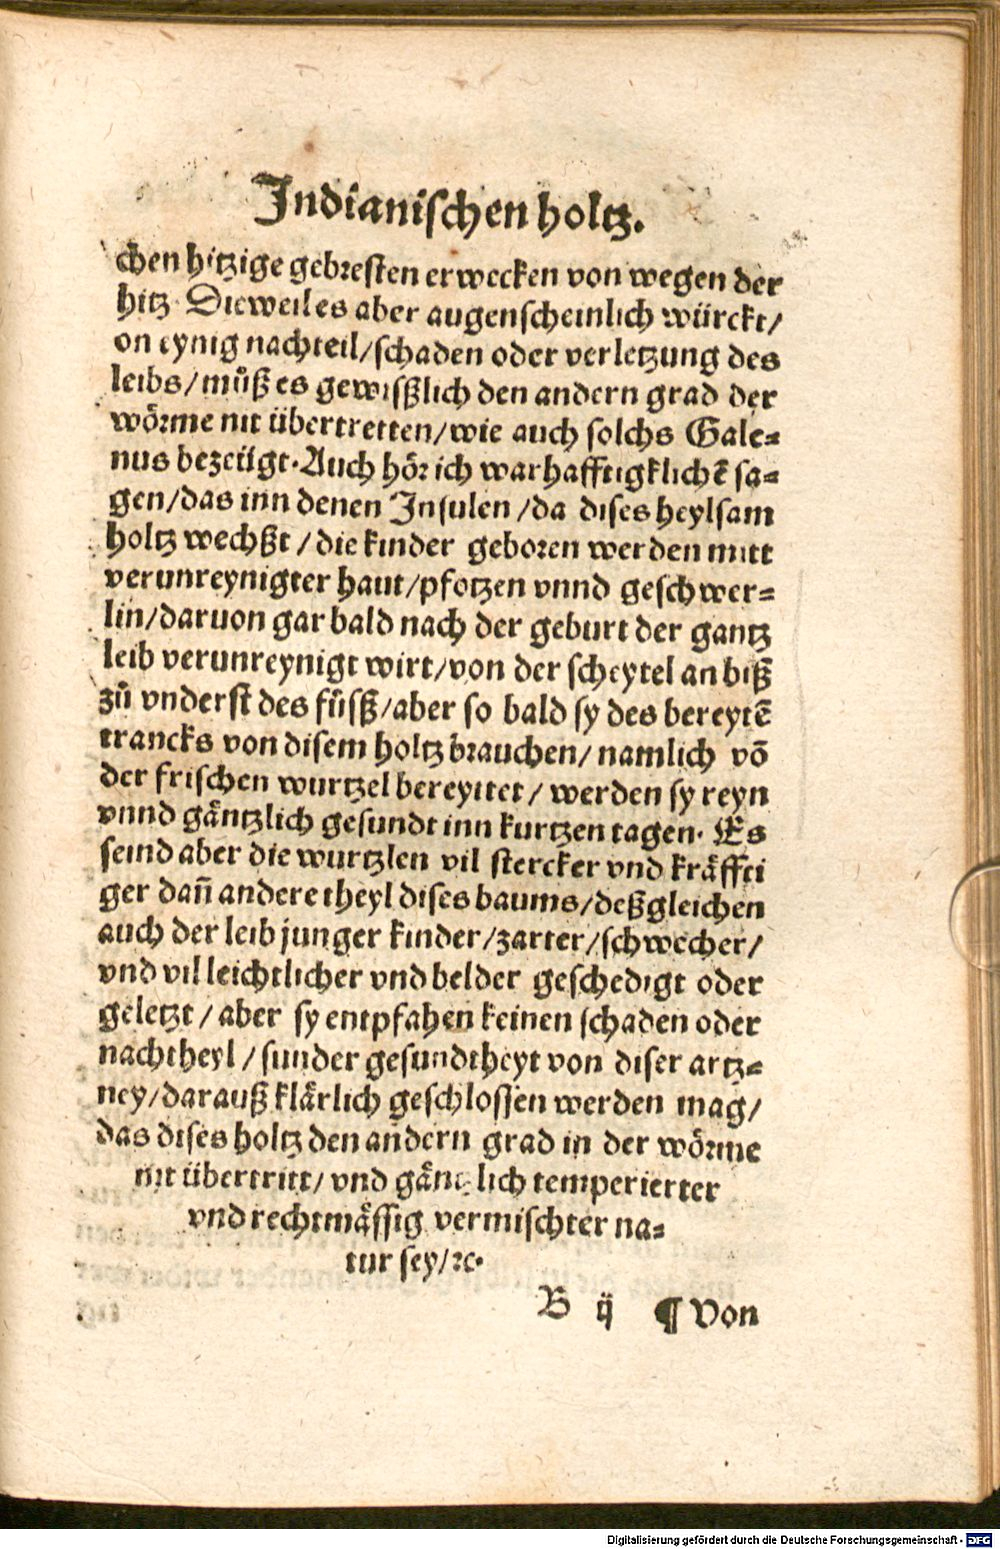 Indianischen holtz.
chen hitzige gebresten erwecken von wegen der
hitz. Dieweil es aber augenscheinlich würckt/
on eynig nachteil/schaden oder verletzung des
leibs/můß es gewißlich den andern grad der
wörme nit übertretten/wie auch solchs Gale-
nus bezeügt. Auch hör ich warhafftigklichē sa-
gen/das inn denen Insulen/da dises heylsam
holtz wechßt/die kinder geboren werden mitt
verunreynigter haut/pfotzen vnnd geschwer-
lin/daruon gar bald nach der geburt der gantz
leib verunreynigt wirt/von der scheytel an biß
zů vnderst des fůsß/aber so bald sy des bereytē
trancks von disem holtz brauchen/namlich vō
der frischen wurtzel bereyttet/werden sy reyn
vnnd gäntzlich gesundt inn kurtzen tagen. Es
seind aber die wurtzlen vil stercker vnd kräffti
ger dañ andere theyl dises baums/deßgleichen
auch der leib junger kinder/zarter/schwecher/
vnd vil leichtlicher vnd belder geschedigt oder
geletzt/aber sy entpfahen keinen schaden oder
nachtheyl/sunder gesundtheyt von diser artz-
ney/darauß klärlich geschlossen werden mag/
das dises holtz den andern grad in der wörme
nit übertritt/vnd gäntzlich temperierter
vnd rechtmässig vermischter na-
tur sey/ꝛc.
B ij ¶ Von
Digitalisierung gefördert durch die Deutsche Forschungsgemeinschaft - DFG